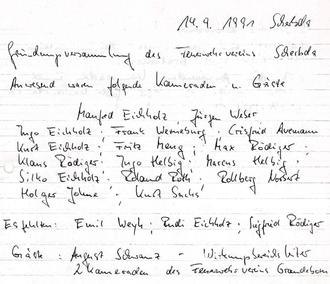 14.9.1991 Scherbda
Gründungsversammlung des Feuerwehrvereins Scherbda
Anwesend waren folgende Kameraden u. Gäste
Manfred Eichholz, Jürgen Weser
Ingo Eichholz, Frank Werneburg, Crisfried Avemann
Kurt Eichholz, Fritz Meng, Max Rödiger,
Klaus Rödiger, Ingo Helbig, Marcus Helbig,
Silko Eichholz, Roland Roth, Rollberg Norbert
Holger John, Kurt Suchs
Es fehlten: Emil Weyh, Rudi Eichholz, Sigfried Rödiger
Gäste: August Schwanz - Wirkungsbereichsleiter
2 Kameraden des Feuerwehrvereins Grandenborn